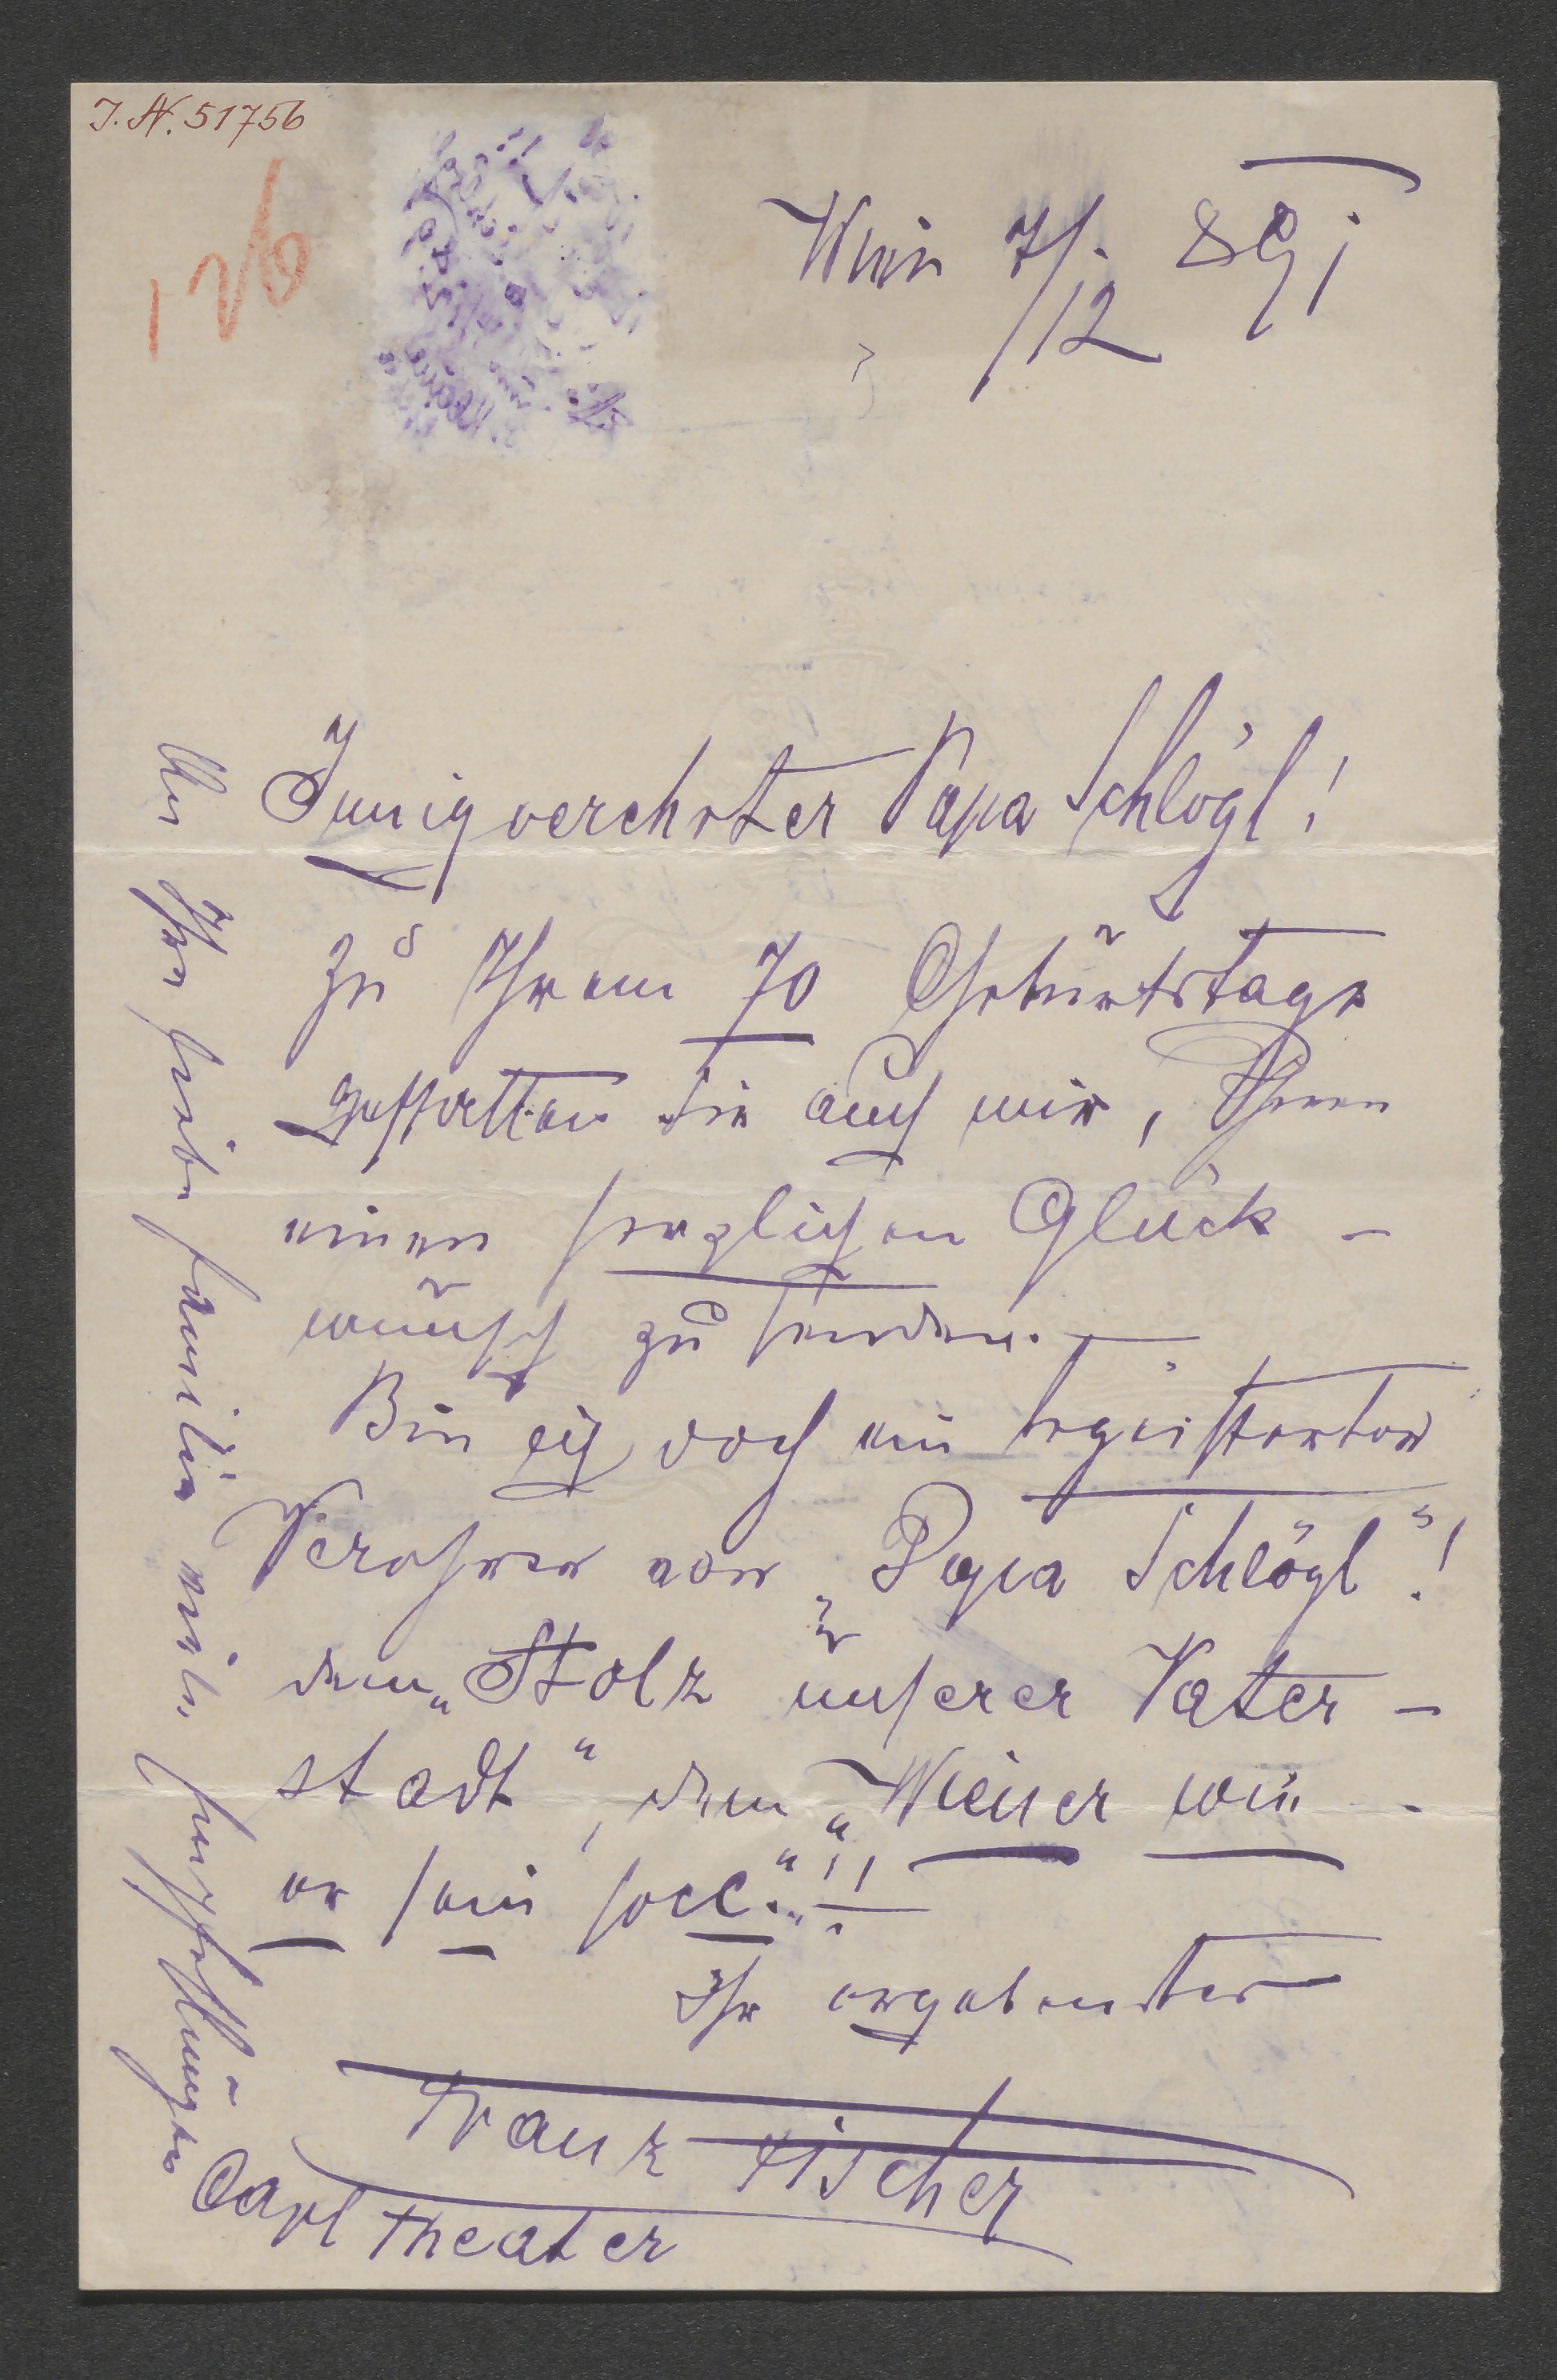 J. N. 51756
126
Wien 7/12 891
Innigverehrter Papa Schlögl!
Zu Ihrem 70 Geburtstage
gestatten Sie auch mir, Ihnen
einen herzlichen Glück-
wunsch zu senden. —
Bin ich doch ein begeisterter
Verehrer von „Papa Schlögl“!
dem „Stolz unserer Vater-
stadt“, dem „Wiener wie
er sein soll.“!!
Ihr ergebenster
Franz Fischer
Carltheater
An Ihre liebe Familie viele Empfehlungen